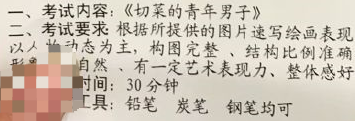 一、考试内容:《切菜的青年男子》
二、考试要求:根据所提供的图片速写绘画表现
以人物动态为主,构图完整、结构比例准确
形 自然、有一定艺术表现力、整体感好
时间:30分钟
工具:铅笔 炭笔 钢笔均可